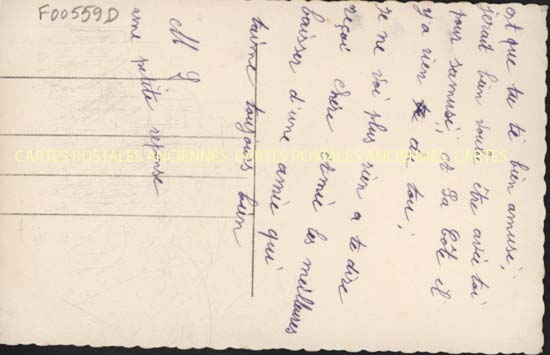 F00559D
est que tu tè bien amusé,
serait bien voulu être avec toi
pour s'amusé, et Sa Côté il
y a rien en tout,
je ne voi plus rien a te dire
reçoi chère amie les meilleures
baisser d'une amie qui
t'aime toujours bien
M S
une petite reponse
CARTES POSTALES ANCIENNES CARTES POSTALES ANCIENNES